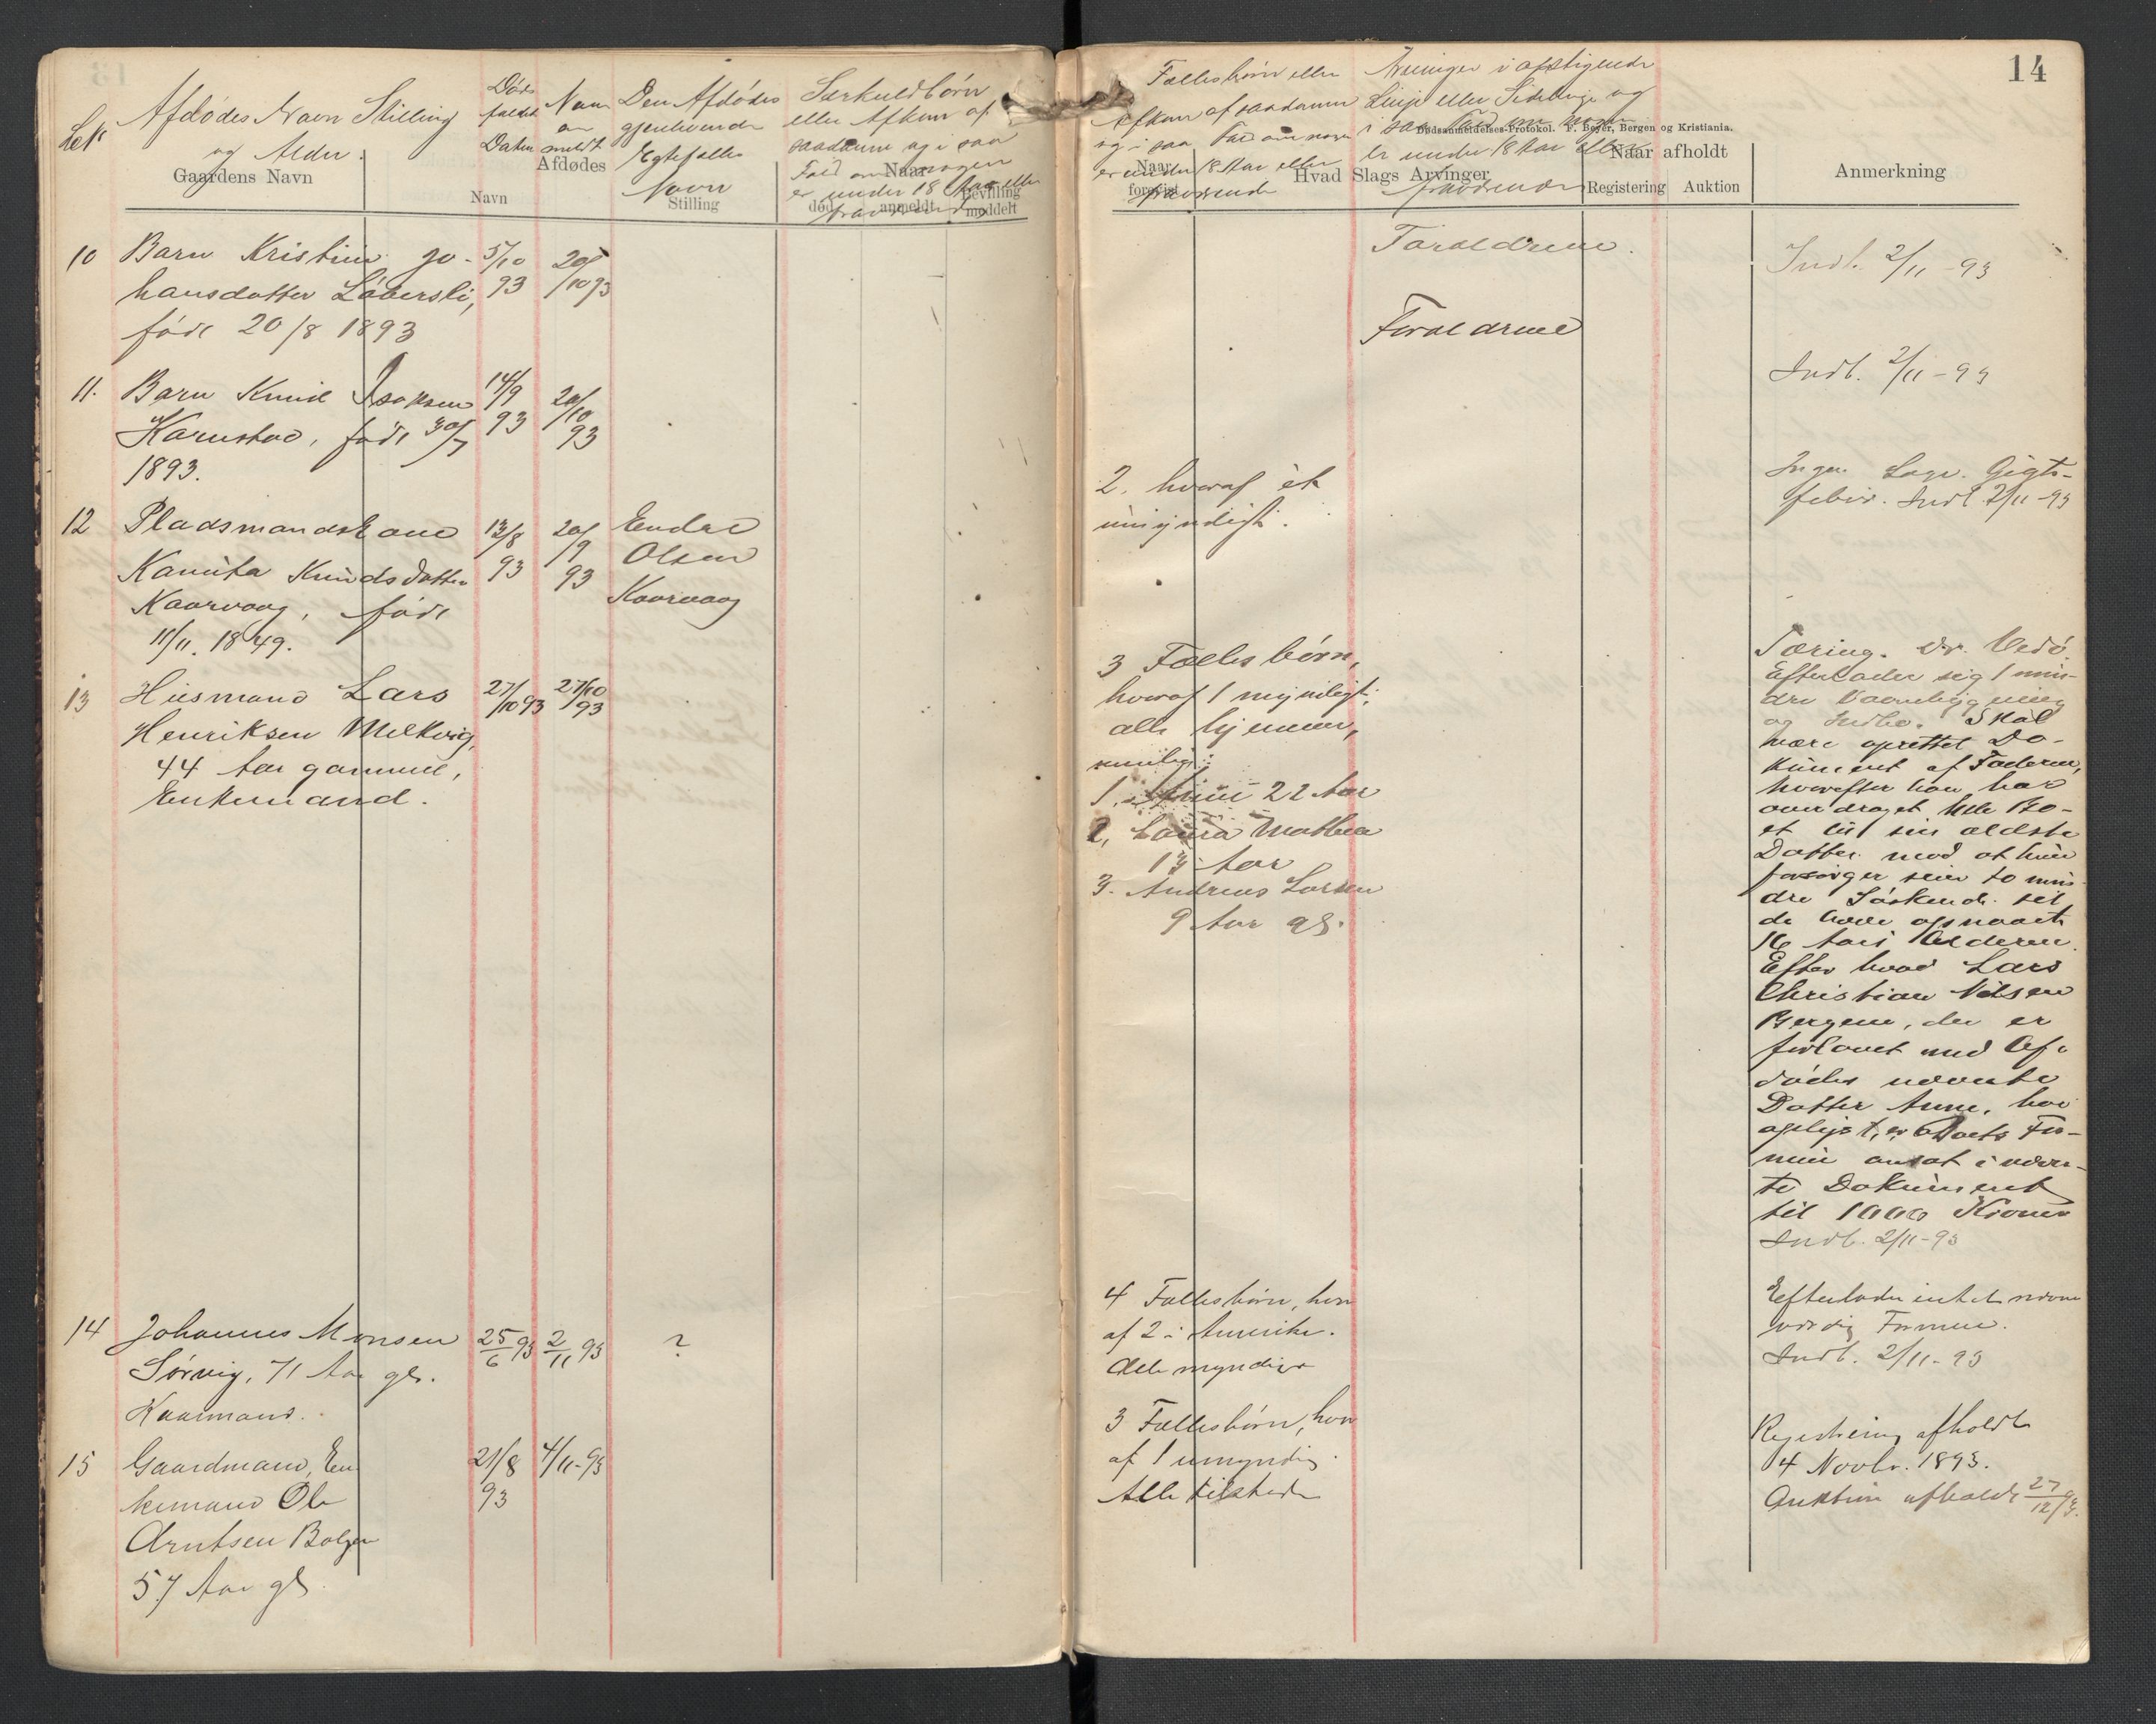 14
Afdødes Navn Stilling
og Alder.
Døds
faldet
Datum
Naar
anmeldt
Den Afdødes
gjenlevende
Egtefælle
Navn
Særkuldbørn
eller Afkom af
saadanne og i saa
Fald om nogen
er under 18 Aar eller
fraværende
Gaardens Navn
Afdødes
Navn
Stilling
Naar
død
anmeldt
Bevilling
meddelt
Fællesbørn eller
Afkom af saadanne
og i saa Fald om nogen
er under 18 Aar eller
fraværende
Arvinger i opstigende
Linje eller Sidelinje og
i saa Fald om nogen
er under 18 Aar eller
fraværende
Dødsanmeldelses-Protokol. F. Beyer, Bergen og Kristiania.
Naar
Hvad Slags Arvinger
Naar afholdt
Registering
Auktion
Anmerkning
10 Barn Kristine Jo-
hansdatter Löversli,
født 20/8 1893
5/10 93
20/10 93
Foræældrene.
Indb. 2/11-93
11. Barn Knud Isaksen
Karnstad, født 30/7
1893.
14/9 93
20/10 93
Forældrene
Indb. 2/11-93
12 Pladsmandskone
Kanuta Knudsdatter
Kaarvaag, født
11/11. 1849.
13/8 93
20/9 93
Endre
Olsen
Kaarvaag
2, hvoraf èt
umyndigt.
Ingen Læge. Gigt-
feber. Indb. 2/11-93
13 Husmand Lars
Henriksen Melkvig,
44 Aar gammel,
Enkemand.
27/10 93
27/10 93
3 Fællesbørn,
hvoraf 1 myndigt;
alle hjemme,
nemlig:
1. Anne 22 Aar
2, Laura Mathea
13 Aar
3. Andreas Larsen
9 Aar gl.
Tæring. Dr. Vedö
Efterlader sig 1 min-
dre Vaaningshus
og Indbo. Skal
være oprettet Do-
kument af Faderen,
hvorefter han har
overdraget hele Bo-
et til sin ældste
Datter mod at hun
forsørger sine to min-
dre Søskende til
de have opnaaet
16 Aars Alderen.
Efter hvad Lars
Christian Nilsen
Bergem, der er
forlovet med Af-
dødes nævnte
Datter Anne, har
oplyst, er Boets For-
mue ansat i nævn-
te Dokument
til 1000 Kroner
Indb. 2/11-93
14 Johannes Monsen
Sørvig, 71 Aar gl.
Kaarmand.
25/6 93
2/11 93
?
4 Fællesbørn, hvor
af 2 i Amerika.
Alle myndige
Efterlader intet nævne
værdig Formue.
Indb. 2/11-93
15 Gaardmand, En
kemand Ole
Arntsen Bolgen
57 Aar gl.
21/8 93
4/11-93
3 Fællesbørn, hvor
af 1 umyndig.
Alle tilstede
Registering afholdt
4 Novbr. 1893.
Auktion afholdt 27/12 93.